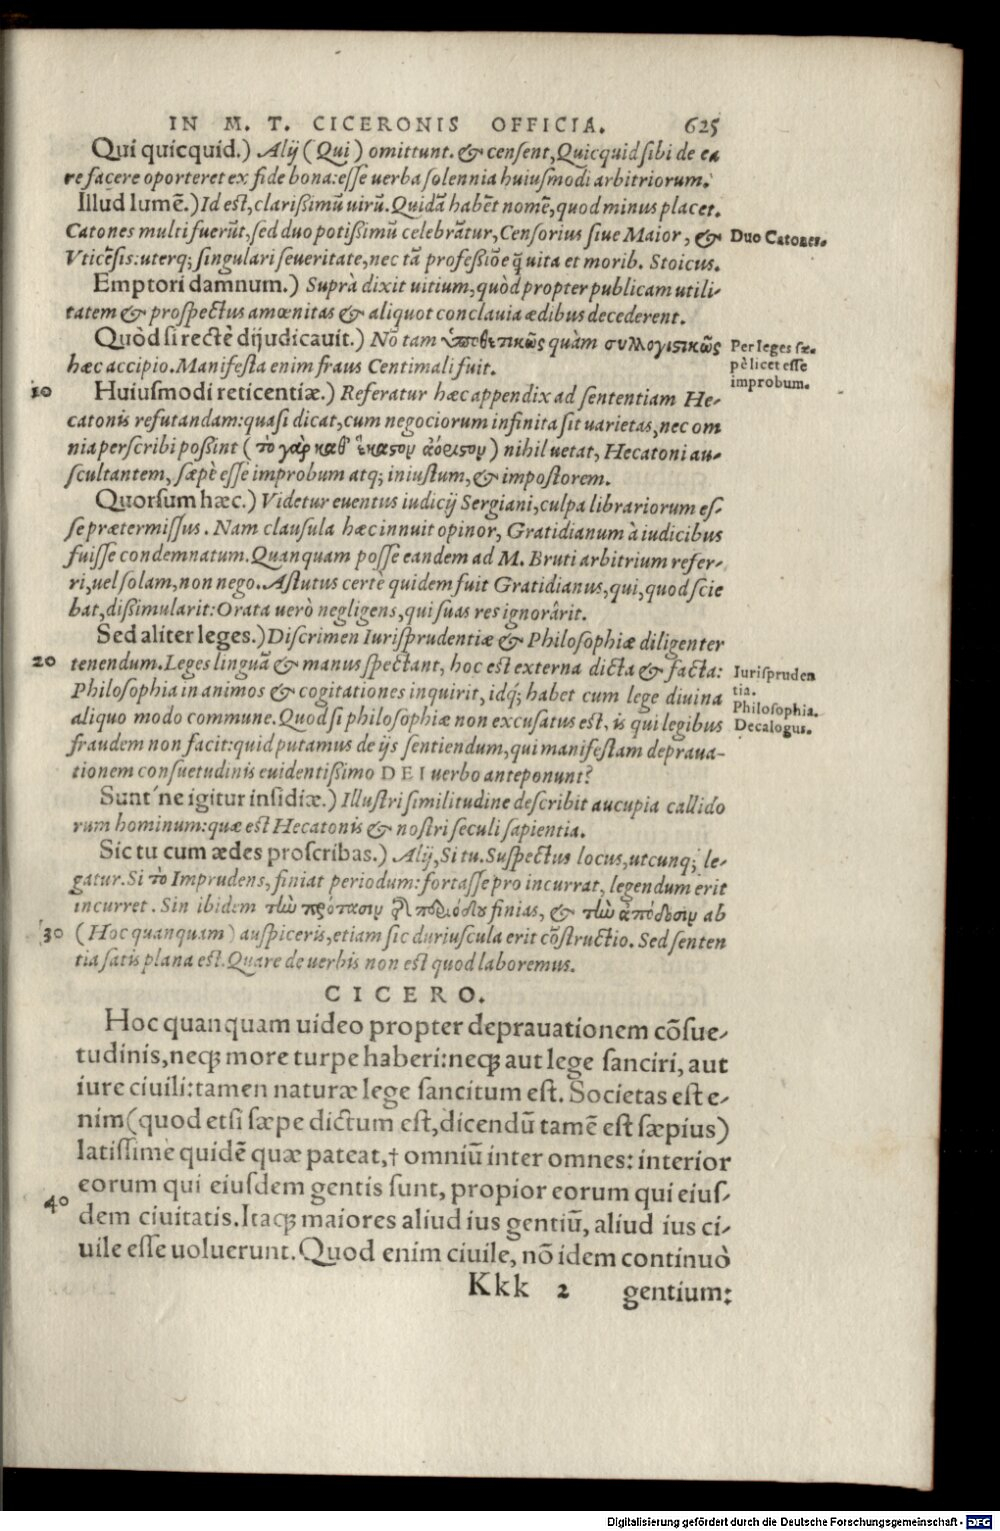 IN M. T. CICERONIS OFFICIA. 625
Qui quicquid.) Alij (Qui) omittunt. & censent, Quicquid sibi de ea
re facere oporteret ex fide bona: esse uerba solennia huiusmodi arbitriorum.
Illud lumē.) Id est, clarißimū uirū. Quidā habēt nomē, quod minus placet.
Catones multi fuerūt, sed duo potißimū celebrātur, Censorius siue Maior, &
Duo Catones.
Vticēsis: uterq; singulari seueritate, nec tā profeßiōe q̄ uita et morib. Stoicus.
Emptori damnum.) Suprà dixit uitium, quòd propter publicam utili-
tatem & prospectus amœnitas & aliquot conclauia ædibus decederent.
Quòd si rectè dijudicauit.) Nō tam ὑποθετικῶς quàm συλλογιστικῶς
Per leges sæ-
hæc accipio. Manifesta enim fraus Centimali fuit.
pè licet esse
improbum.
10 Huiusmodi reticentiæ.) Referatur hæc appendix ad sententiam He-
catonis refutandam: quasi dicat, cum negociorum infinita sit uarietas, nec om
nia perscribi poßint (τὸ γὰρ καθ' ἕκαστον ἀόριστον) nihil uetat, Hecatoni au-
scultantem, sæpè esse improbum atq; iniustum, & impostorem.
Quorsum hæc.) Videtur euentus iudicij Sergiani, culpa librariorum es-
se prætermissus. Nam clausula hæc innuit opinor, Gratidianum à iudicibus
fuisse condemnatum. Quanquam posse eandem ad M. Bruti arbitrium refer-
ri, uel solam, non nego. Astutus certè quidem fuit Gratidianus, qui, quod scie
bat, dißimularit: Orata uerò negligens, qui suas res ignorârit.
Sed aliter leges.) Discrimen Iurisprudentiæ & Philosophiæ diligenter
20 tenendum. Leges linguā & manus spectant, hoc est externa dicta & facta:
Iurispruden
tia.
Philosophia in animos & cogitationes inquirit, idq; habet cum lege diuina
Philosophia.
aliquo modo commune. Quod si philosophiæ non excusatus est, is qui legibus
Decalogus.
fraudem non facit: quid putamus de ijs sentiendum, qui manifestam depraua-
tionem consuetudinis euidentißimo DEI uerbo anteponunt?
Sunt'ne igitur insidiæ.) Illustri similitudine describit aucupia callido
rum hominum: quæ est Hecatonis & nostri seculi sapientia.
Sic tu cum ædes proscribas.) Alij, Si tu. Suspectus locus, utcunq; le-
gatur. Si τὸ Imprudens, finiat periodum: fortasse pro incurrat, legendum erit
incurret. Sin ibidem τὴν πρότασιν finias, & τὴν ἀπόδοσιν ab
30 (Hoc quanquam) auspiceris, etiam sic duriuscula erit cōstructio. Sed senten
tia satis plana est. Quare de uerbis non est quod laboremus.
CICERO.
Hoc quanquam uideo propter deprauationem cōsue-
tudinis, neq; more turpe haberi: neq; aut lege sanciri, aut
iure ciuili: tamen naturæ lege sancitum est. Societas est e-
nim (quod etsi sæpe dictum est, dicendū tamē est sæpius)
latissimè quidē quæ pateat, † omniū inter omnes: interior
eorum qui eiusdem gentis sunt, propior eorum qui eius-
40 dem ciuitatis. Itaq; maiores aliud ius gentiū, aliud ius ci-
uile esse uoluerunt. Quod enim ciuile, nō idem continuò
Kkk 2 gentium:
Digitalisierung gefördert durch die Deutsche Forschungsgemeinschaft - DFG